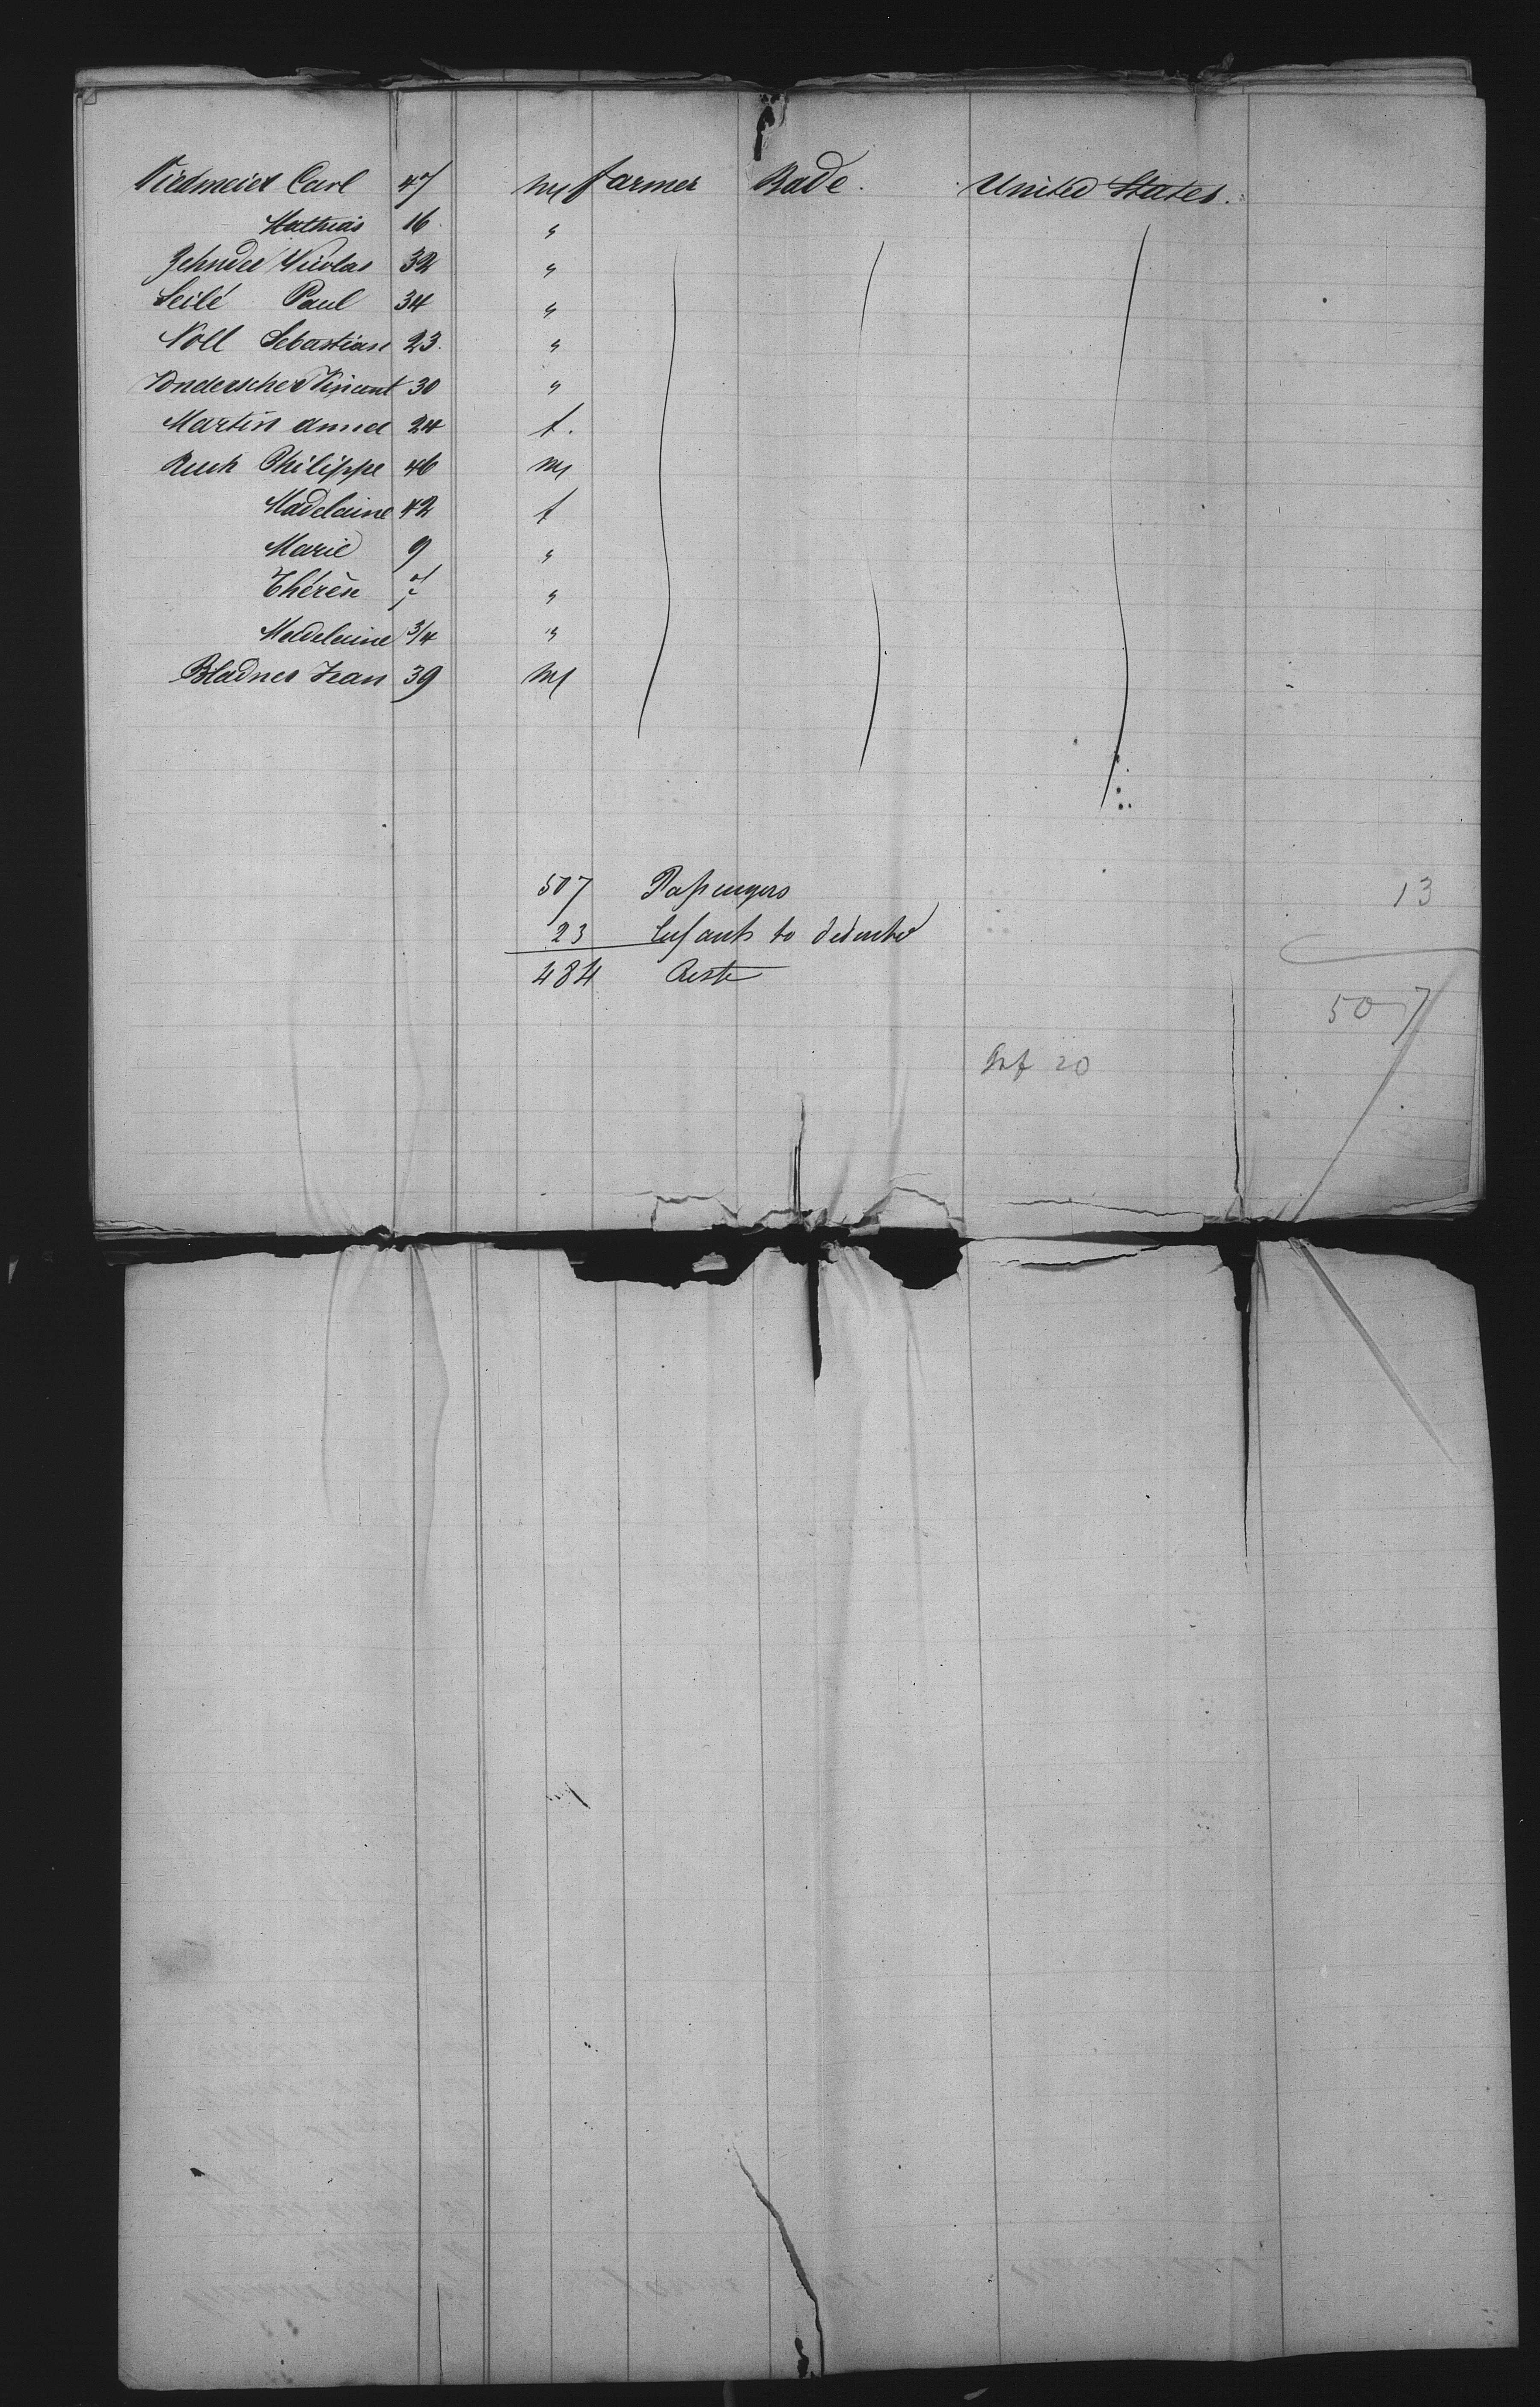 Viedmeier Carl 47 M farmer Bade. United States.
Mathias 16 "
Zehnder Nicolas 32 "
Seilé Paul 34 "
Noll Sebastian 23. "
Vonderscher Vincent 30 "
Martin Anna 24 f.
Ruch Philippe 46 M
Madelaine 42 f
Marie 9 "
Thérèse 7 "
Madelaine 3/4 "
Bladner Jean 39 M
507 Passengers
13
23 Infants to deduct
484 Reste
507
Inf 20